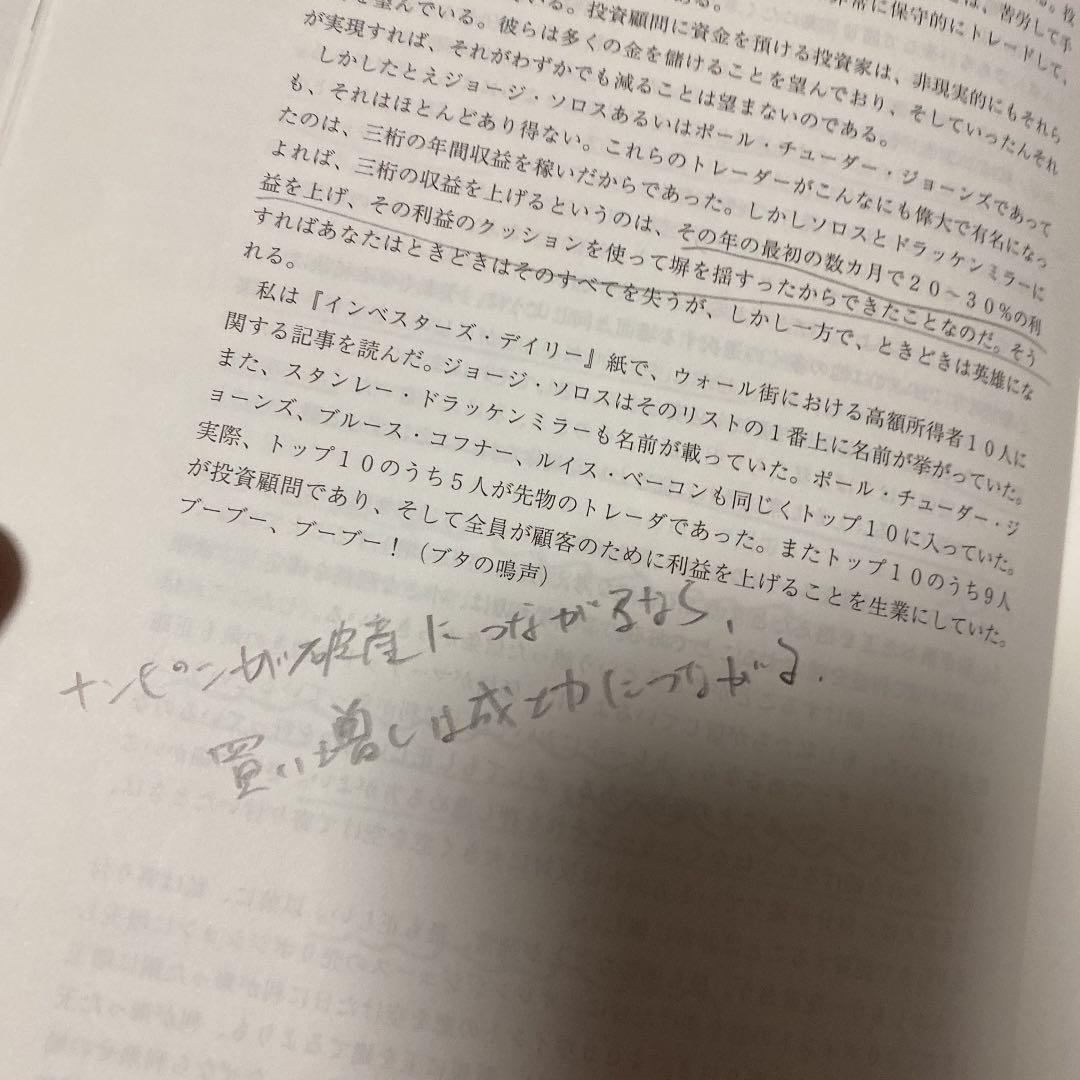 は、苦労して手
常に保守的にトレードして、
を望んでいる。投資顧問に資金を預ける投資家は、非現実的にもそれら
が実現すれば、それがわずかでも減ることは望まないのである。
彼らは多くの金を儲けることを望んでおり、そしていったんそれ
しかしたとえジョージ・ソロスあるいはポール・チューダー・ジョーンズであって
も、それはほとんどあり得ない。これらのトレーダーがこんなにも偉大で有名になっ
たのは、三桁の年間収益を稼いだからであった。しかしソロスとドラッケンミラーに
よれば、三桁の収益を上げるというのは、その年の最初の数カ月で20~30%の利
益を上げ、その利益のクッションを使って塀を揺すったからできたことなのだ。そう
すればあなたはときどきはそのすべてを失うが、しかし一方で、ときどきは英雄にな
れる。
私は『インベスターズ・デイリー』紙で、ウォール街における高額所得者10人に
関する記事を読んだ。ジョージ・ソロスはそのリストの1番上に名前が挙がっていた。
また、スタンレー・ドラッケンミラーも名前が載っていた。ポール・チューダー・ジ
ョーンズ、ブルース・コフナー、ルイス・ベーコンも同じくトップ10に入っていた。
実際、トップ10のうち5人が先物のトレーダであった。またトップ10のうち9人
が投資顧問であり、そして全員が顧客のために利益を上げることを生業にしていた。
ブーブー、ブーブー!(ブタの鳴声)
ナンピンが破産につながるなら,
買い増しは成功につながる.